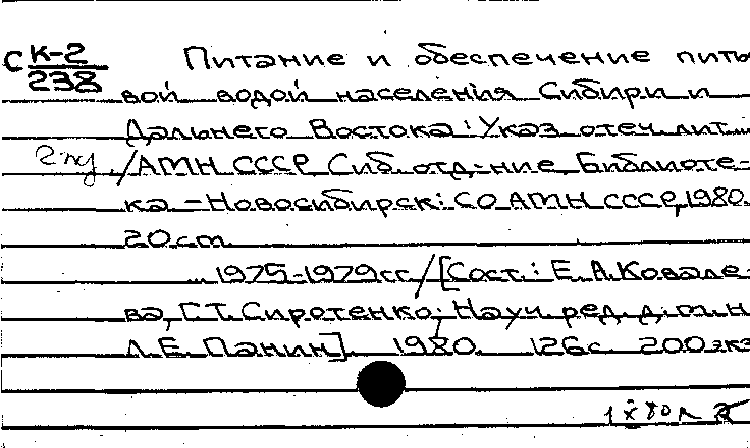 С К-2
238
Питание и обеспечение пить
вой водой населения Сибири и
Дальнего Востока: Указ. отеч. лит.
/АМН СССР Сиб. отд-ние, Библиоте-
ка - Новосибирск: СО АМН СССР, 1980.
20 см.
... 1975-1979 гг /[Сост.: Е.А. Ковале-
ва, Г.Т. Сиротенко; Науч. ред. д. м. н
Л.Е. Панин]. 1980. 126 с. 200 экз